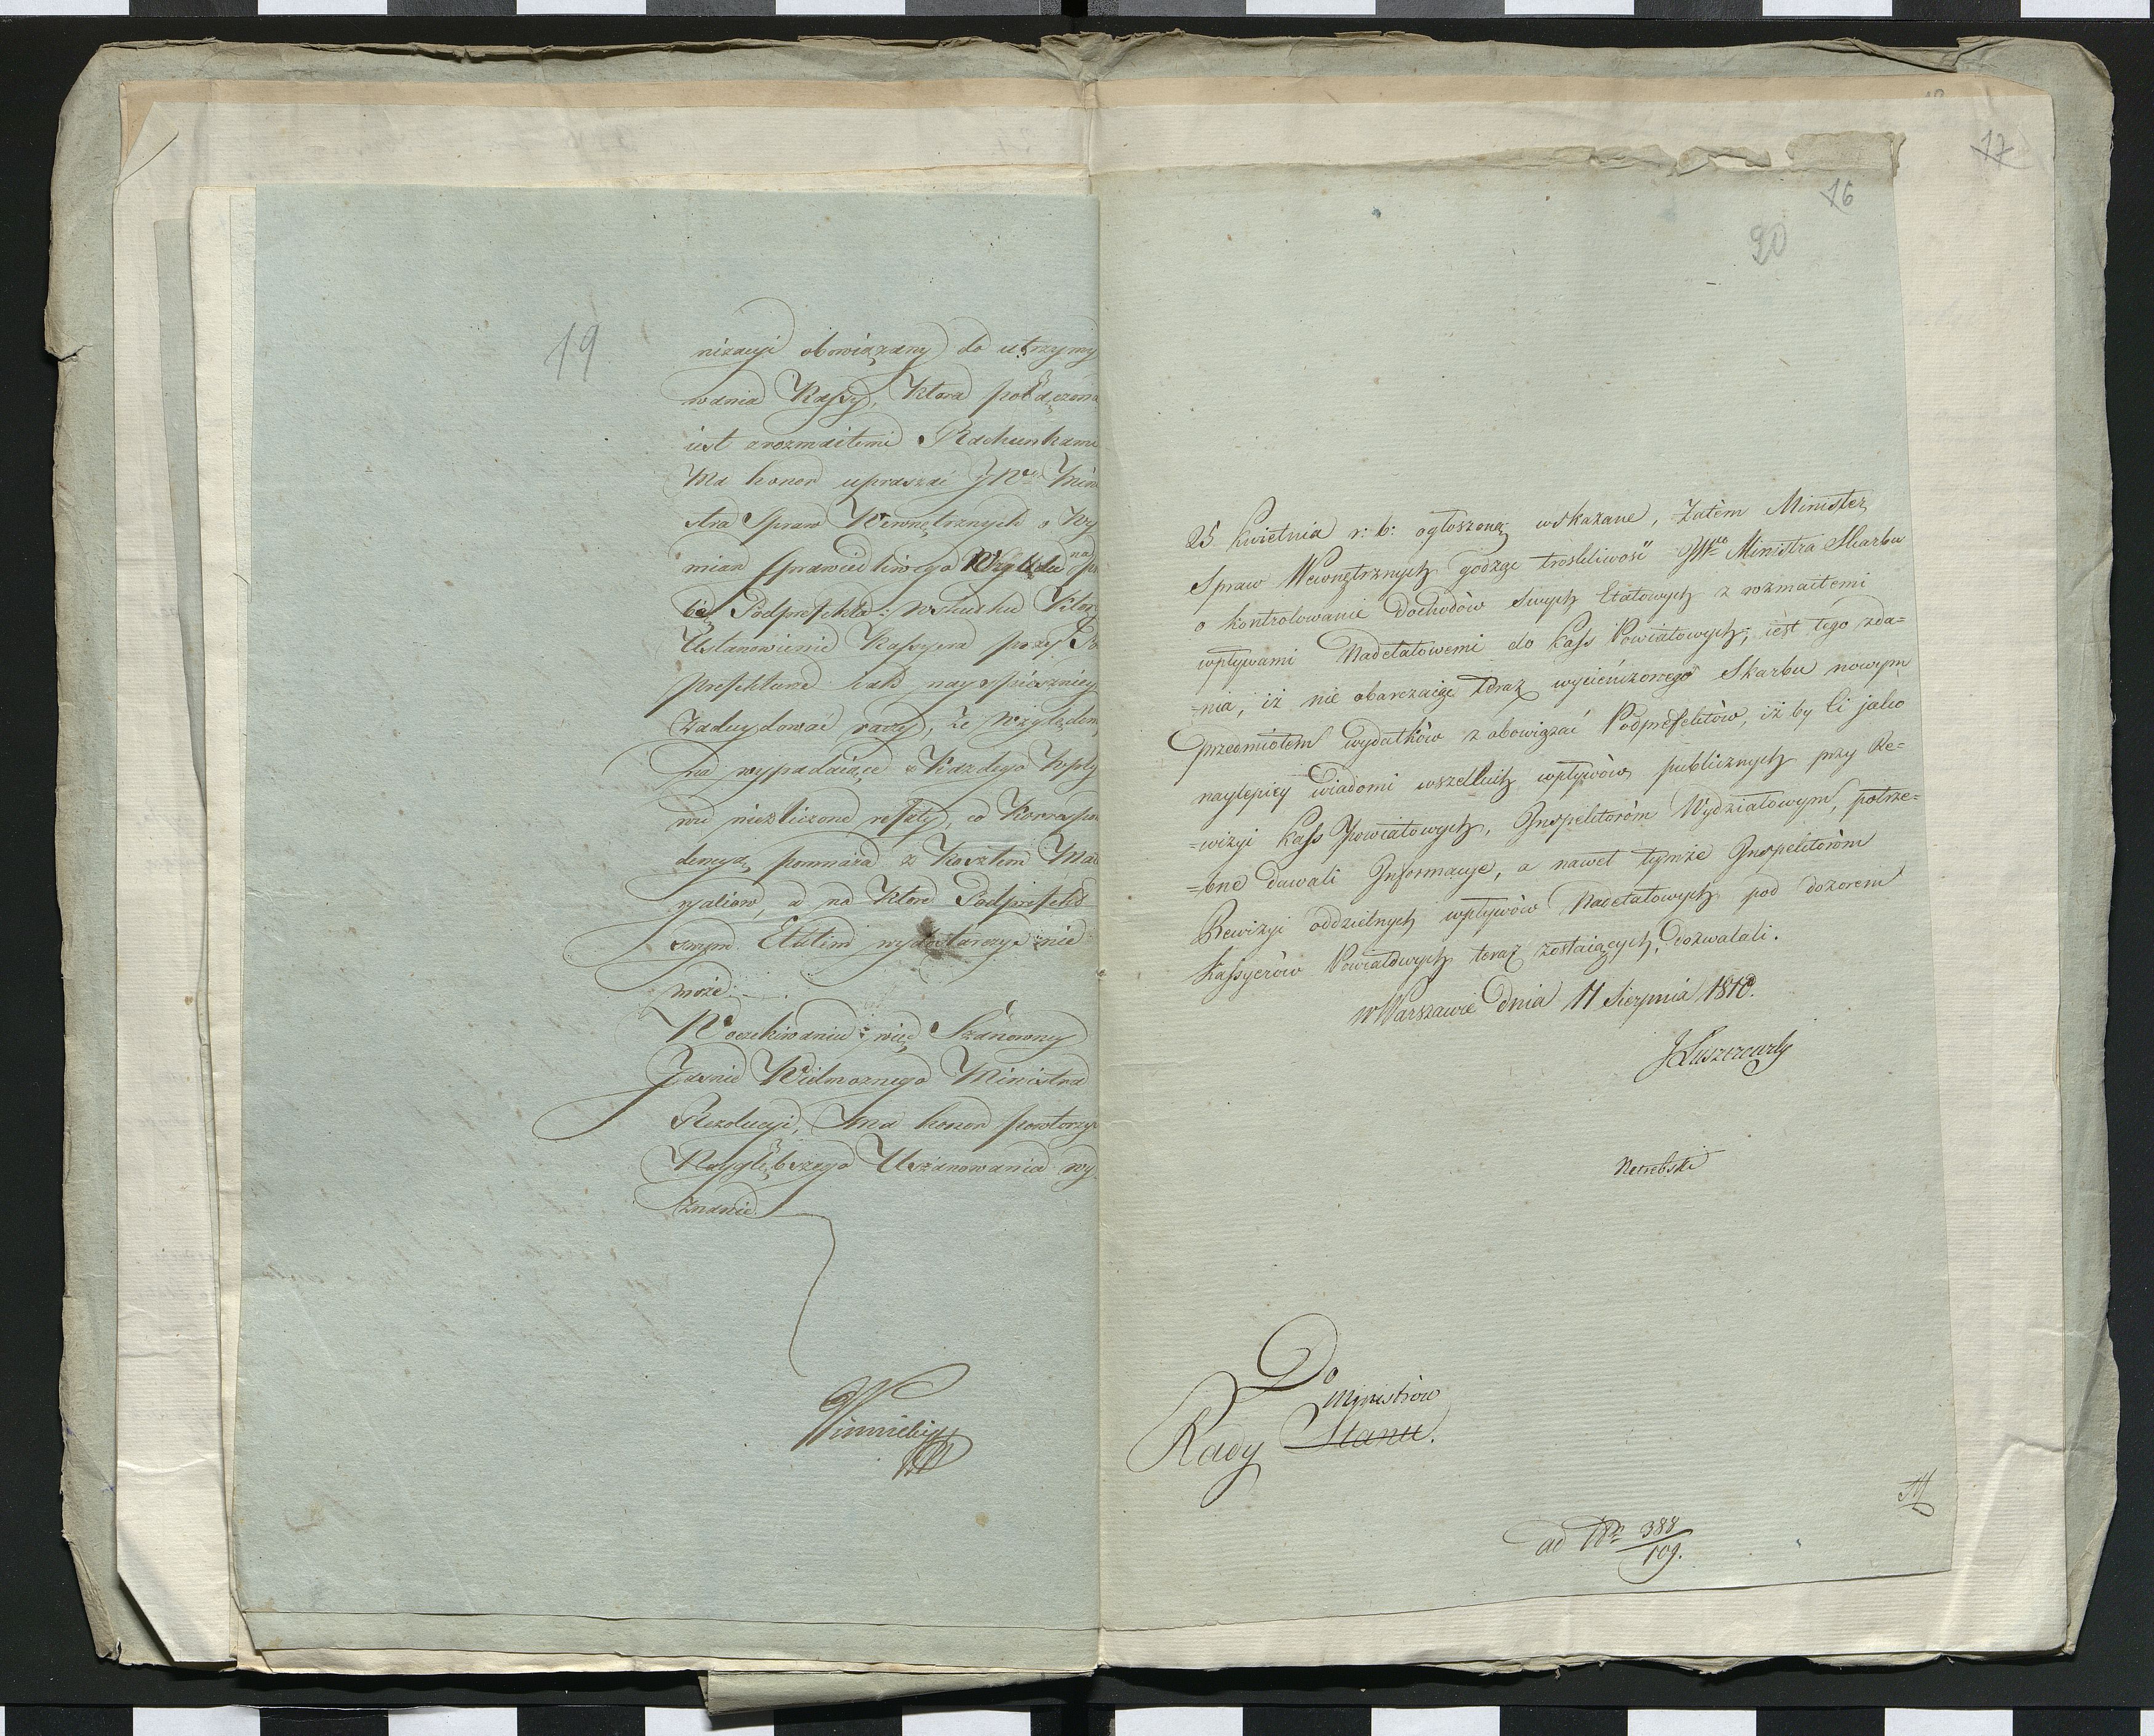 19
nizacyi obowiązany do utrzymy
wania Kassy, Ktora połączona
iest z rozmaitemi Rachunkami
Ma honor upraszać JW Mini
stra Spraw Wewnętrznych o Wy
miar sprawiedliwego Względu na
Podprefekta; w skutku Ktor
Ustanowienie Kassyera przy Po
prefekturze iak nayspieszniey
Zadecydować raczy, że Względem
na wypadaiące z Każdego Wpły
wu niezliczone reszty, co Korrespon
dencyą pomnaża z Kosztem Mate
ryałów, a na Które Podprefekt
swym Etatem wydostarczyć nie
może.
W oczekiwaniu więc Szanowney
Jaśnie Wielmożnego Ministra
Rezolucyi, ma honor powtorzyć
Naygłębszego Uszanowania wy
znanie
17
16
20
25 Kwietnia r: b: ogłoszoney wskazane, Zatém Minister
Spraw Wewnętrznych godząc troskliwość JWgo Ministra Skarbu
o kontrolowanie Dochodów Swych Etatowych z rozmaitemi
wpływami Nadetatowemi do Kass Powiatowych; iest tego zda=
=nia, iż nie obarczaiąc teraz wycieńczonego Skarbu nowym
przedmiotem wydatków z obowiązać Podprefektów, iż by Ci jako
naylepiey wiadomi wszelkich wpływów publicznych przy Re=
=wizyi Kass Powiatowych, Inspektoróm Wydziałowym, potrze=
=bne dawali Informacye, a nawet tymże Inspektoróm
Rewizyi oddzielnych wpływów Nadetatowych pod dozorem
Kassyerów Powiatowych teraz zostaiących, dozwalali.
w Warszawie Dnia 11 Sierpnia 1810.
JŁuszczewsky
Do
Ministrów
Rady Stanu.
ad 388
109.